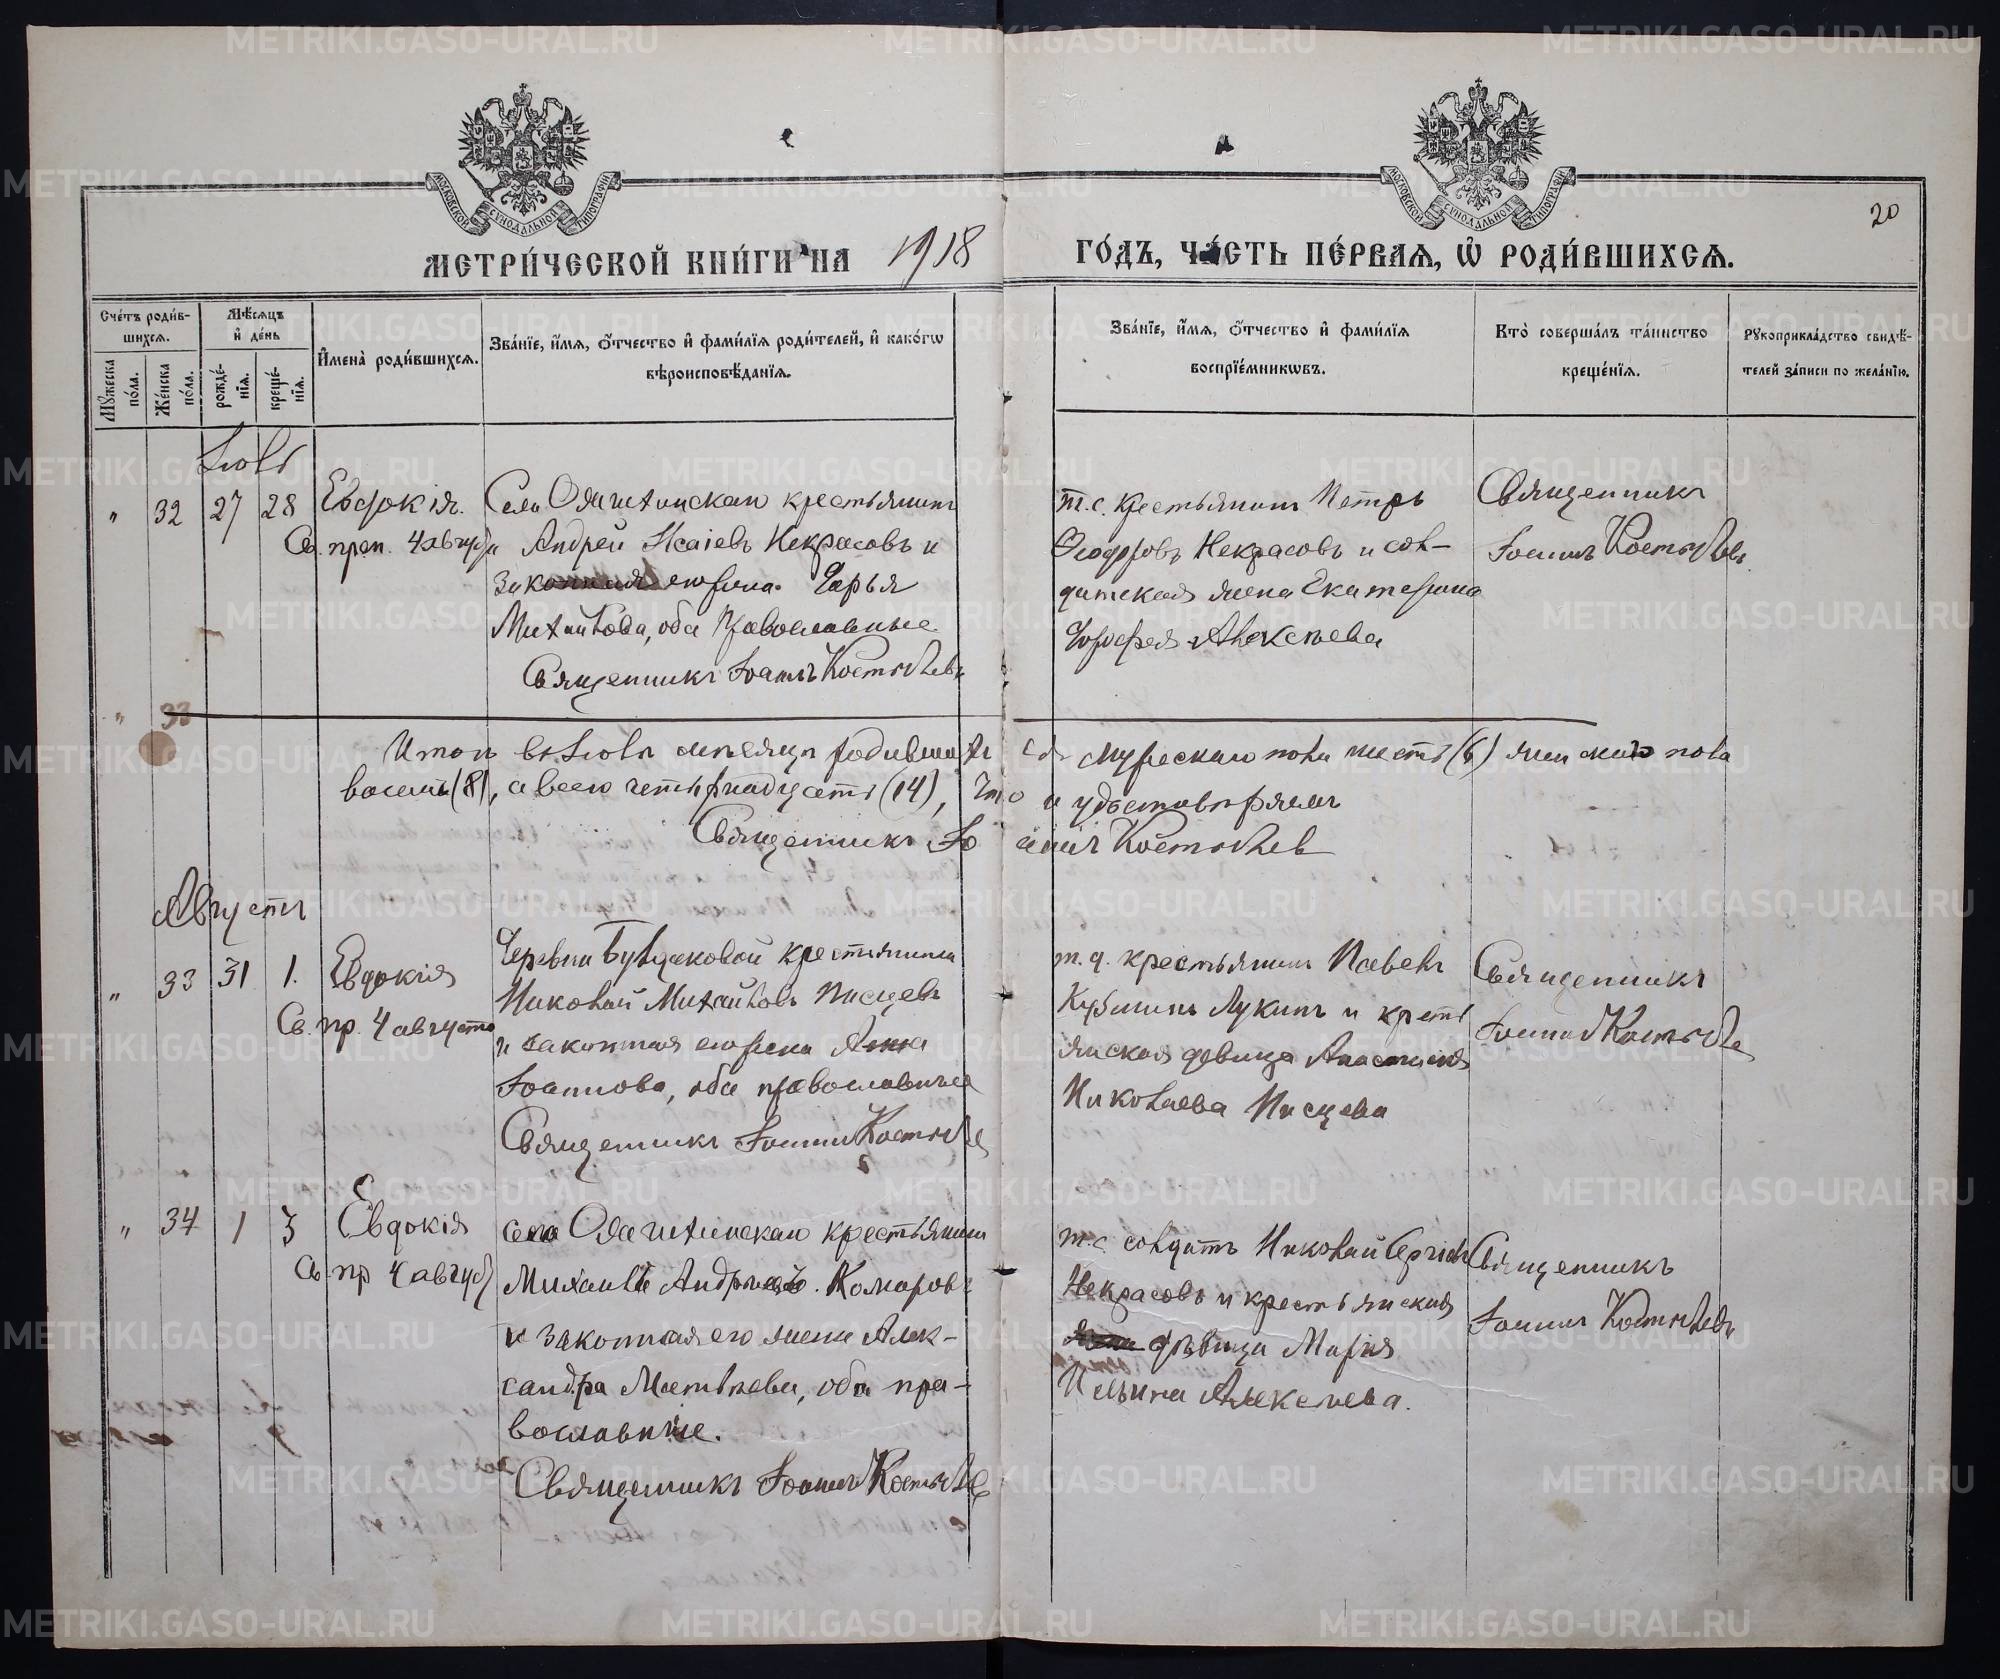 МЕТРИ́ЧЕСКОЙ КНИ́ГИ НА 1918 ГО́ДЪ, ЧА́СТЬ ПЕ́РВАЯ, Ѽ РОДИ́ВШИХСЯ.
20
МОСКОВСКОЙ СѴНОДАЛЬНОЙ ТИПОГРАФІИ
МОСКОВСКОЙ СѴНОДАЛЬНОЙ ТИПОГРАФІИ
Сче́тъ роди́в-
шихся.
Мѣ́сяцъ
и҆ де́нь
Мꙋ́жеска
по́ла.
Же́нска
по́ла.
рожде́-
нїя.
креще́-
нїя.
И҆мена̀ роди́вшихся.
Зва́нїе, и҆́мя, ѻ҆́тчество и҆ фами́лїя роди́телей, и҆ како́гѡ
вѣроисповѣ́данїя.
Зва́нїе, и҆́мя, ѻ҆́тчество и҆ фами́лїя
воспрїе́мникѡвъ.
Кто̀ соверша́лъ та́инство
креще́нїя.
Рꙋкоприкла́дство свидѣ́-
телей за́писи по жела́нїю.
Іюль
" 32 27 28 Евдокія.
Св. преп. 4 августа
крестьянинъ
Андрей Исаіевъ Некрасовъ и
законная его жена Дарья
Михайлова, оба православные
Священникъ Іоаннъ Костылевъ
т.с. крестьянинъ Петръ
Ѳеодоровъ Некрасовъ и сол-
датская жена Екатерина
Дорофея Алексѣева
Священникъ
Іоаннъ Костылевъ
" 33
Итого въ Іюль мѣсяцѣ родившихся мужескаго пола шесть (6) женскаго пола
восемь (8), а всего четырнадцать (14), что и удостовѣряемъ
Священникъ Іоаннъ Костылев
Августъ
" 33 31 1. Евдокія
Св. пр. 4 августа
Деревни крестьянинъ
Николай Михайловъ Писцевъ
и законная его жена Анна
Іоаннова, оба православные
Священникъ Іоаннъ Костылев
т.д. крестьянинъ Павелъ
Кузьминъ Лукинъ и кресть
янская девица Анастасія
Николаева Писцева
Священникъ
Іоаннъ Костылев
" 34 1 3 Евдокія
Св. пр 4 август
села крестьянинъ
Михаилъ Андреевъ. Комаровъ
и законная его жена Алек-
сандра Матвѣева, оба пра-
вославные.
Священникъ Іоаннъ Костылев
т.с. солдатъ Николай Сергіев
Некрасовъ и крестьянская
дѣвица Марія
Ильина Алексѣева.
Священникъ
Іоаннъ Костылевъ